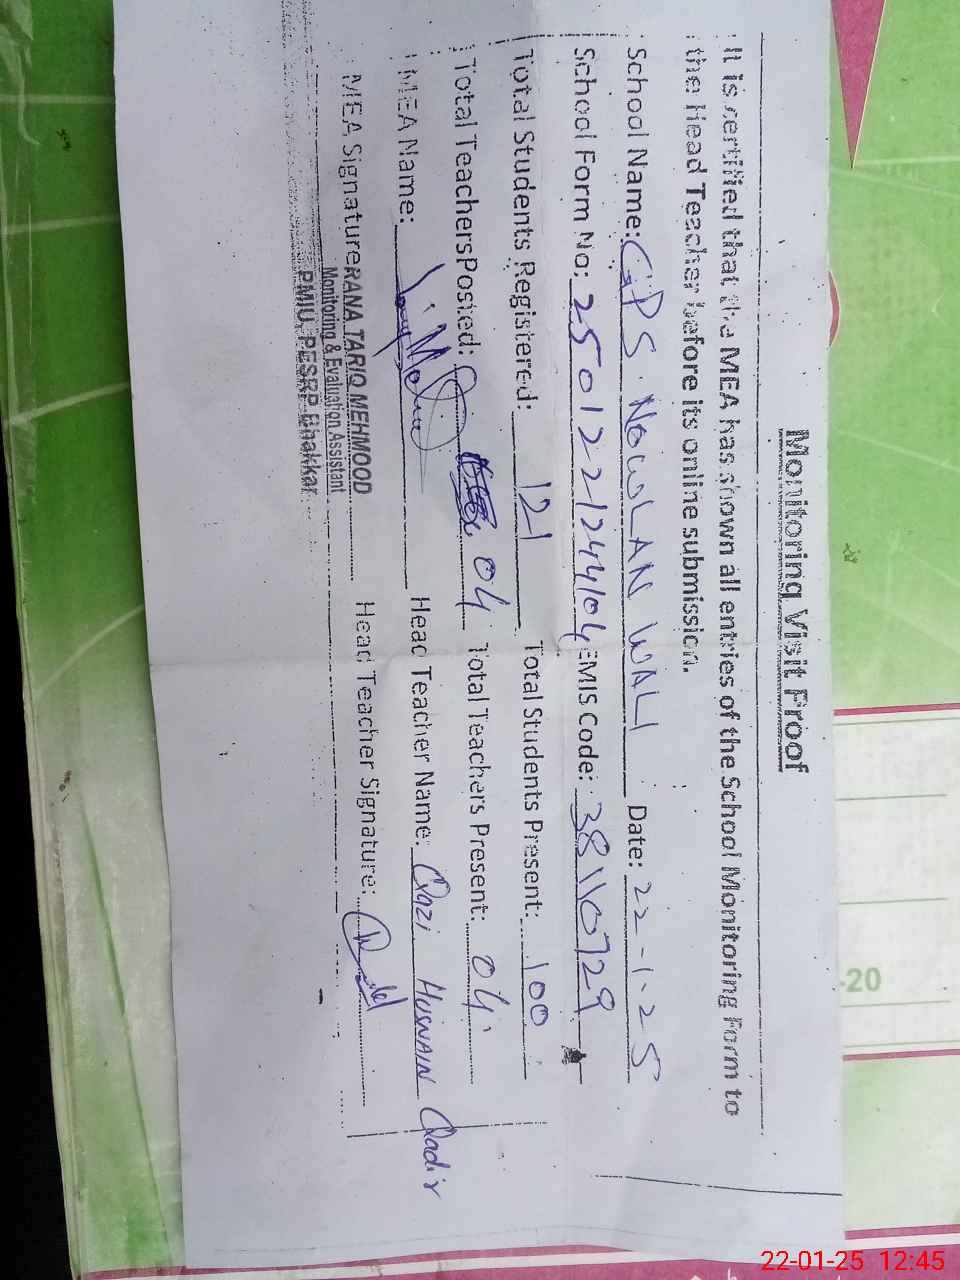 Monitoring Visit Proof
It is certified that the MEA has shown all entries of the School Monitoring Form to
the Head Teacher before its online submission.
School Name: GPS NOWLAN WALI Date: 22-1-25
School Form No: 2501221244104 EMIS Code: 38110729
Total Students Registered: 121 Total Students Present: 100
Total Teachers Posted: 04 Total Teachers Present: 04
MEA Name: Head Teacher Name: Qazi HUSNAIN Qadir
MEA Signature Head Teacher Signature:
RANA TARIQ MEHMOOD
Monitoring & Evaluation Assistant
PMIU, PESRP Bhakkar
-20
22-01-25 12:45